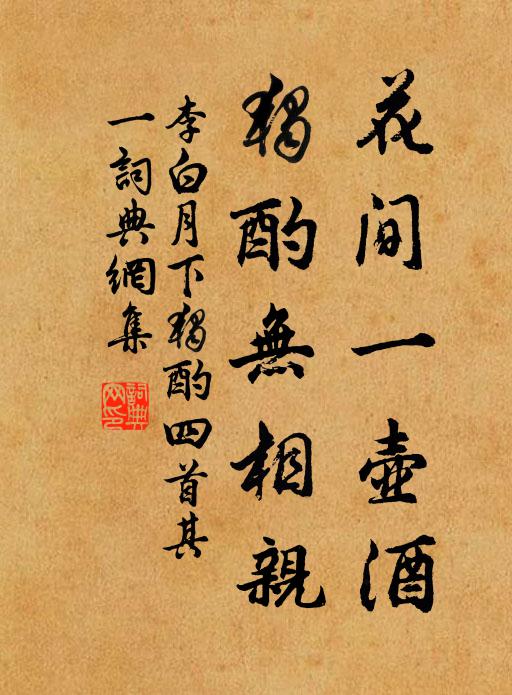 花间一壺酒
獨酌無相親
李白月下獨酌四首其
一詞典網集
詞典
网印